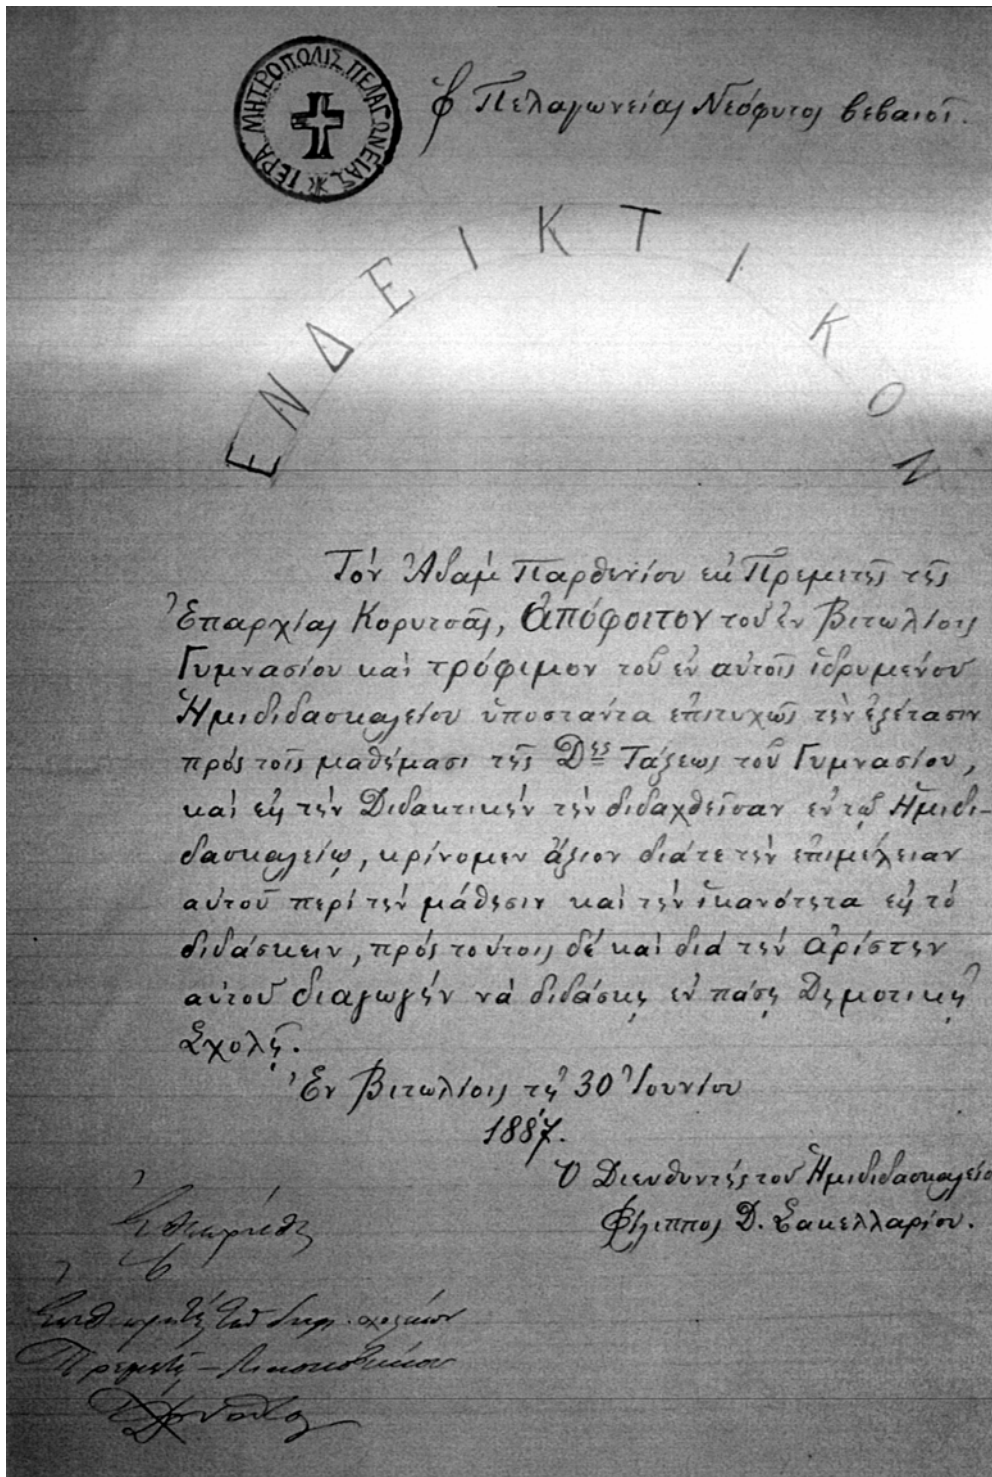 ΙΕΡΑ ΜΗΤΡΟΠΟΛΙΣ ΠΕΛΑΓΩΝΕΙΑΣ
Πελαγωνείας Νεόφυτος βεβαιοῖ.
ΕΝΔΕΙΚΤΙΚΟΝ
Τόν Ἀδάμ Παρθενίου ἐκ Πρεμετῆς τῆς
Ἐπαρχίας Κορυτσᾶς, ἀπόφοιτον τοῦ ἐν Βιτωλίοις
Γυμνασίου καί τρόφιμον τοῦ ἐν αὐτοῖς ἱδρυμένου
Ἡμιδιδασκαλείου ὑποστάντα ἐπιτυχῶς τήν ἐξέτασιν
πρός τοῖς μαθήμασι τῆς Δης Τάξεως τοῦ Γυμνασίου,
καί εἰς τήν Διδακτικήν τήν διδαχθεῖσαν ἐν τῷ Ἡμιδι-
δασκαλείῳ, κρίνομεν ἄξιον διά τε τήν ἐπιμέλειαν
αὐτοῦ περί τήν μάθησιν καί τήν ἱκανότητα εἰς τό
διδάσκειν, πρός τούτοις δέ καί διά τήν ἀρίστην
αὐτοῦ διαγωγήν νά διδάσκῃ ἐν πάσῃ Δημοτικῇ
Σχολῇ.
Ἐν Βιτωλίοις τῇ 30 Ἰουνίου
1887.
Ὁ Διευθυντής τοῦ Ἡμιδιδασκαλείο
Φίλιππος Δ. Σακελλαρίου.
Ἐθεωρήθη